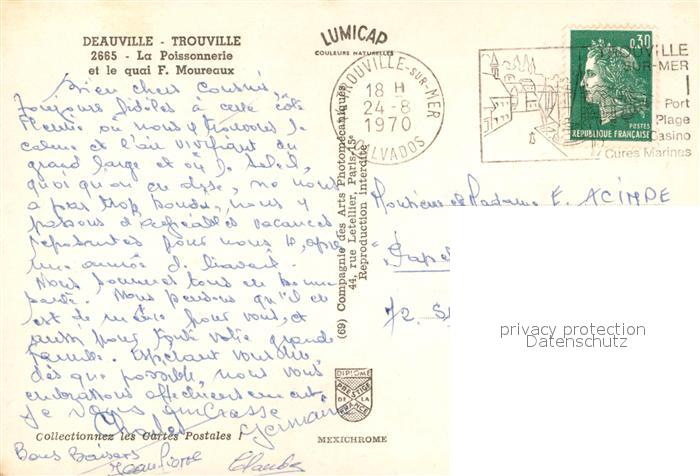 DEAUVILLE - TROUVILLE
2665 - La Poissonnerie
et le quai F. Moureaux
LUMICAP
COULEURS NATURELLES
TROUVILLE-SUR-MER
18 H
24-8
1970
CALVADOS
0,30
POSTES
REPUBLIQUE FRANÇAISE
TROUVILLE
SUR-MER
Port
Plage
Casino
Cures Marines
Bien chers cousins,
toujours fidèles à cette côte
Fleurie où nous trouvons le
calme et l'air vivifiant du
grand large et où le soleil,
quoi qu'on en dise, ne nous
a pas trop boudé, nous y
passons d'agréables vacances
reposantes pour nous 2, après
une année de travail.
Nous sommes tous en bonne
santé. Nous pensons qu'il en
est de même pour vous, et
aussi pour toute votre grande
famille. Espérant vous lire
dès que possible, nous vous
embrassons affectueusement.
Je vous embrasse
Charles Germaine
Bons Baisers
Jean Pierre Claudes
(69) Compagnie des Arts Photomécaniques
44, rue Letellier, Paris-15e
Reproduction interdite
Monsieur et Madame E. ACINDE
72. S
privacy protection
Datenschutz
DIPLOME
PRESTIGE
DE LA
FRANCE
Collectionnez les Cartes Postales !
MEXICHROME